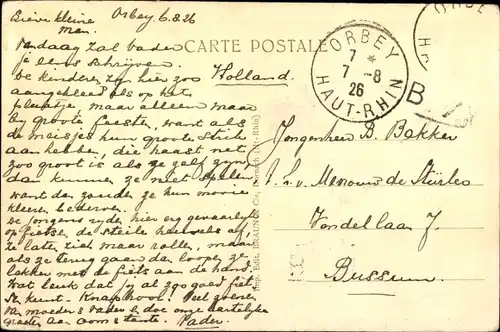 Orbey 6.8.26
Lieve kleine
man.
Vandaag zal vader
je eens schrijven.
De kinderen zijn hier zoo
aangekleed als op het
plaatje, maar alleen maar
bij groote feesten, want als
de meisjes hun groote strik
aan hebben, die haast net
zoo groot is als ze zelf zijn
dan kunnen ze niet spelen,
want dan zouden ze hun mooie
kleeren bederven.
De jongens rijden hier erg gevaarlijk
op fietsen de steile heuvels af,
ze laten zich maar rollen, maar
als ze terug gaan dan loopen ze
lekker met de fiets aan de hand.
Wat leuk dat jij al zoo goed fiets
rijden kunt. Knap hoor! Veel zoenen
van moeder & vader & doe onze hartelijke
groeten aan oom & tante. Vader.
CARTE POSTALE
Holland.
ORBEY
7 *
7 - 8
26
HAUT-RHIN
B
Jongenheer B. Bakker
Mevrouw de
Vondellaan 7.
Bussum.
Imp. Edit. BRAUN & Cie, Dornach (Ht-Rhin)